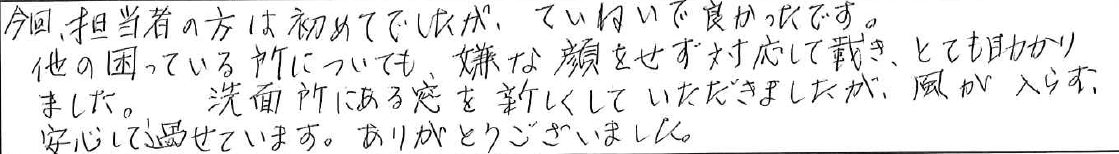 今回、担当者の方は初めてでしたが、ていねいで良かったです。
他の困っている所についても、嫌な顔をせず対応して戴き、とても助かり
ました。　洗面所にある窓を新しくしていただきましたが、風が入らず、
安心して過せています。ありがとうございました。